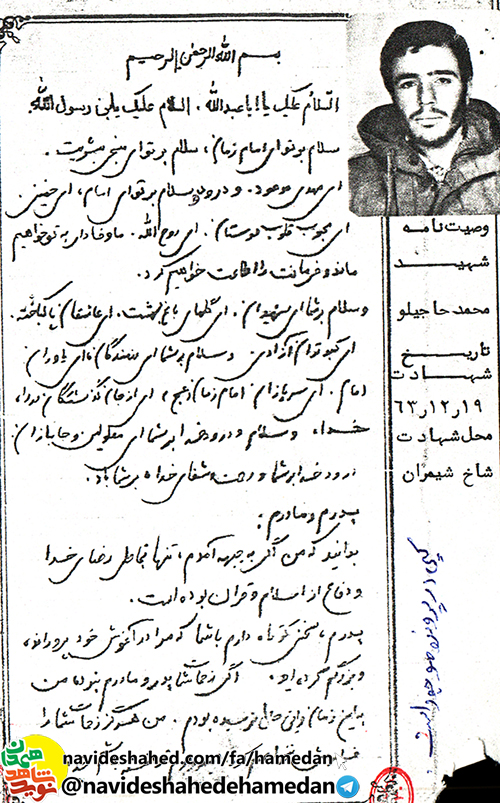 بسم الله الرحمن الرحیم
السلام علیک یا اباعبدالله. السلام علیک یابن رسول الله
سلام بر تو ای امام زمان، سلام بر تو ای منجی بشریت.
ای مهدی موعود. و درود و سلام بر تو ای امام، ای خمینی
ای محبوب قلوب دوستان. ای روح الله. ما وفادار به تو خواهیم
ماند و فرمانت را اطاعت خواهیم کرد.
و سلام بر شما ای شهیدان. ای گلهای باغ بهشت. ای عاشقان پاکباخته.
ای کبوتران آزادی و سلام بر شما ای رزمندگان ای یاوران
امام. ای سربازان امام زمان (عج)، ای از جان گذشتگان
خدا، و سلام و درود خدا بر شما ای معلولین و جانبازان
درود خدا بر شما و رحمت و شفای خدا بر شما باد.
پدرم و مادرم:
بدانید که من اگر به جبهه آمدم، تنها بخاطر رضای خدا
و دفاع از اسلام و قرآن بوده است.
پدرم، سخنی کوتاه دارم با شما که مرا در آغوش خود پرورانده،
و بزرگم کرده اید. اگر زحمات شما پدر و مادرم نبود من
به این زمان نرسیده بودم. من هرگز زحمات شما را
وصیت نامه
شهید
محمد حاجیلو
تاریخ
شهادت
۶۳٫۱۲٫۱۹
محل شهادت
شاخ شمیران
نوید شاهد
همدان
navideshahed.com/fa/hamedan
@navideshahedehamedan